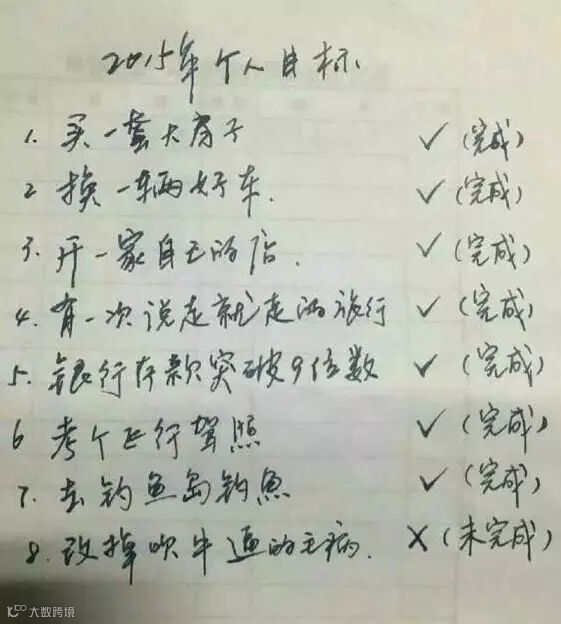 2015年个人目标
1. 买一套大房子 ✓ (完成)
2 换一辆好车. ✓ (完成)
3. 开一家自己的店. ✓ (完成)
4. 有一次说走就走的旅行 ✓ (完成)
5. 银行存款突破9位数 ✓ (完成)
6 考个飞行驾照 ✓ (完成)
7. 去钓鱼岛钓魚 ✓ (完成)
8. 改掉吹牛逼的毛病. ✗ (未完成)
大数跨境